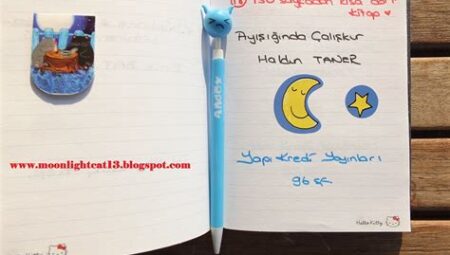 150 sayfadan kısa bir
kitap
Ayışığında Çalışkur
Haldun TANER
Yapı Kredi Yayınları
96 sf
www.moonlightcat13.blogspot.com
Hello Kitty